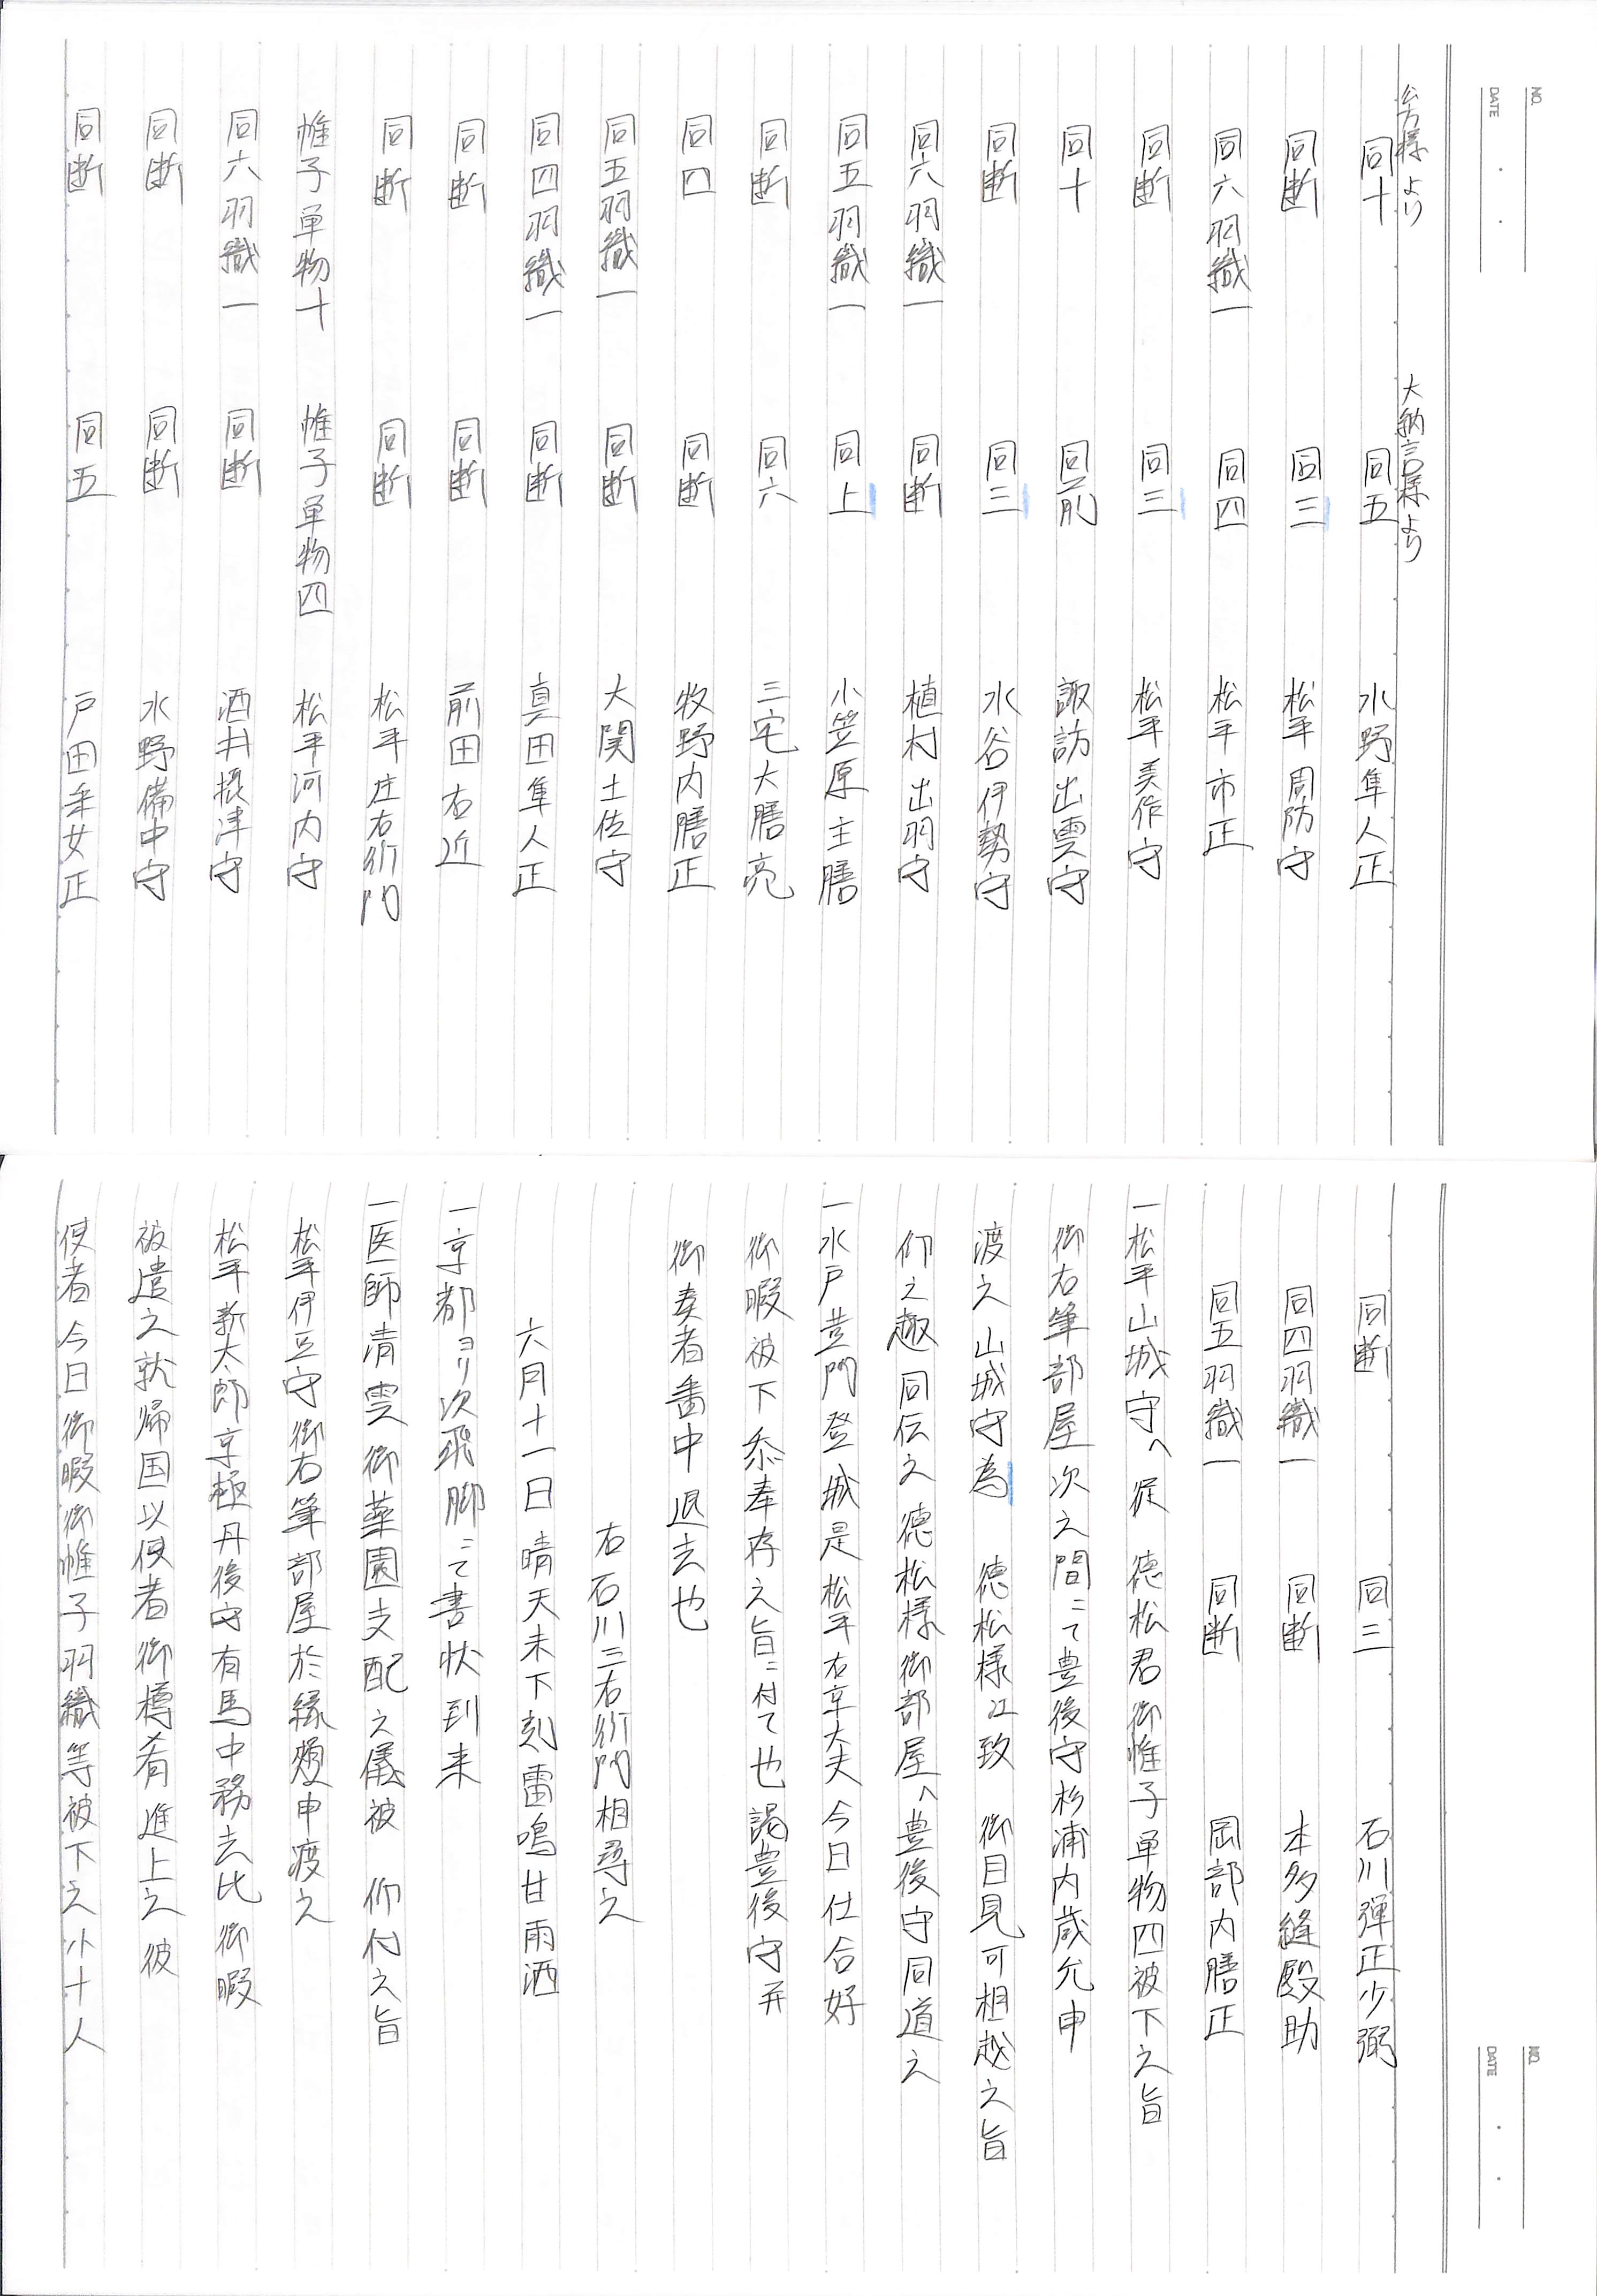 NO.
DATE
公方様より　大納言様より
同十　同五　水野隼人正
同断　同三　松平周防守
同六羽織一　同四　松平市正
同断　同三　松平美作守
同十　同前　諏訪出雲守
同断　同三　水谷伊勢守
同六羽織一　同断　植村出羽守
同五羽織一　同上　小笠原主膳
同断　同六　三宅大膳亮
同四　同断　牧野内膳正
同五羽織一　同断　大関土佐守
同四羽織一　同断　真田隼人正
同断　同断　前田右近
同断　同断　松平庄右衛門
帷子単物十　帷子単物四　松平河内守
同六羽織一　同断　酒井摂津守
同断　同断　水野備中守
同断　同五　戸田采女正
NO.
DATE
同断　同三　石川弾正少弼
同四羽織一　同断　本多縫殿助
同五羽織一　同断　岡部内膳正
一松平山城守へ従　徳松君御帷子単物四被下之旨
御右筆部屋次之間ニて豊後守杉浦内蔵允申
渡之山城守為　徳松様江致　御目見可相越之旨
仰之趣同伝之徳松様御部屋へ豊後守同道之
一水戸黄門登城是松平右京大夫今日仕合好
御暇被下忝奉存之旨ニ付て也謁豊後守并
御奏者番中退去也
右石川三右衛門相尋之
六月十一日晴天未下刻雷鳴甘雨洒
一京都ヨリ次飛脚ニて書状到来
一医師清雲御薬園支配之儀被　仰付之旨
松平伊豆守御右筆部屋於縁頬申渡之
松平新太郎京極丹後守有馬中務去比御暇
被遣之就帰国以使者御樽肴進上之彼
使者今日御暇御帷子羽織等被下之小十人